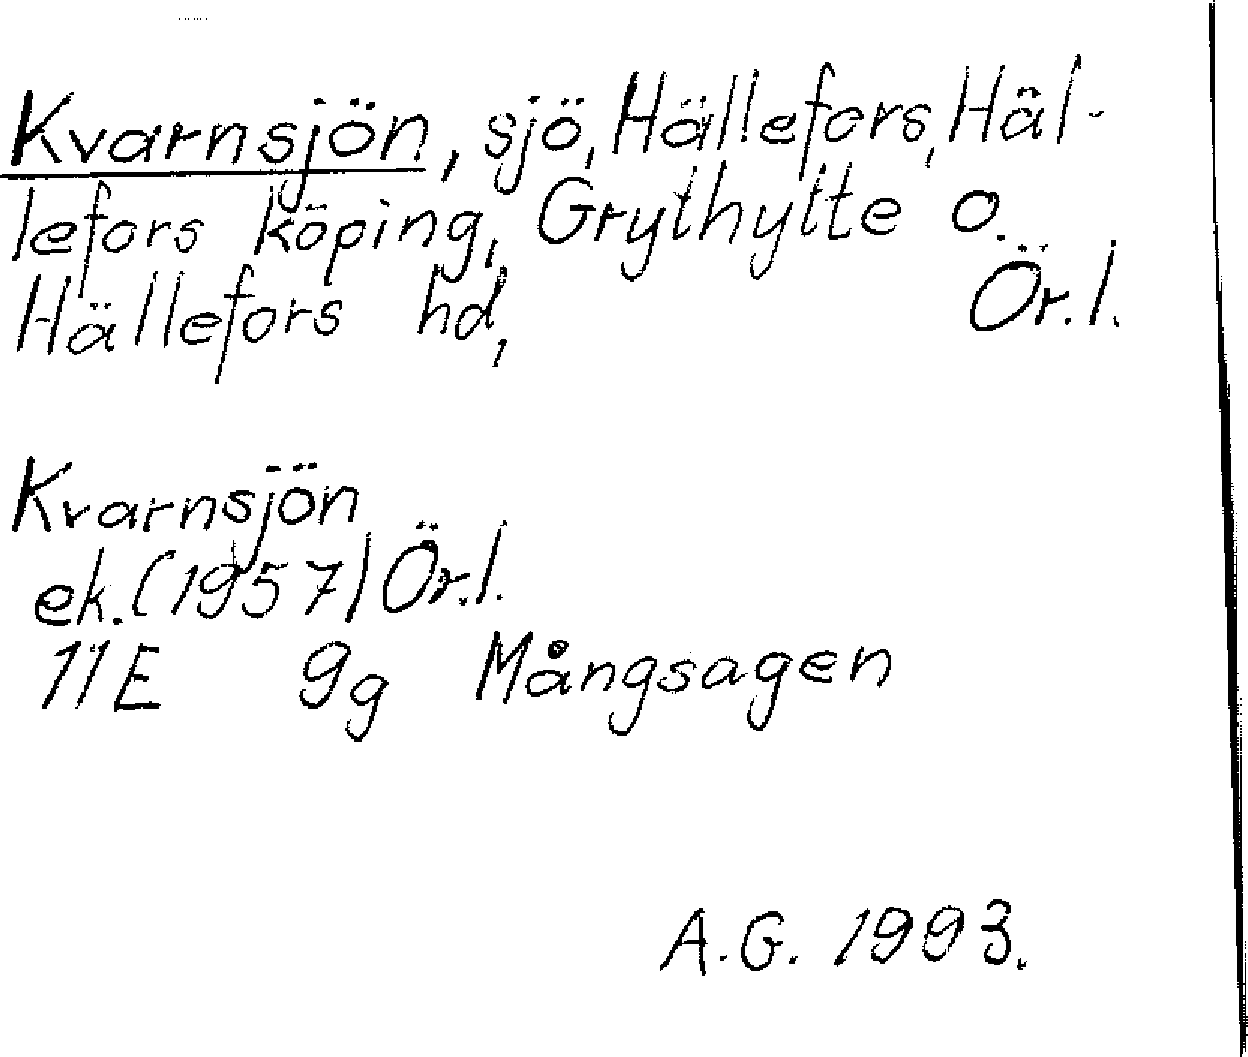 Kvarnsjön, sjö, Hällefors, Häl-
lefors köping, Grythytte o.
Hällefors hd, Ör.l.
Kvarnsjön
ek. (1957) Ör.l.
11E 9g Mångsagen
A.G. 1993.